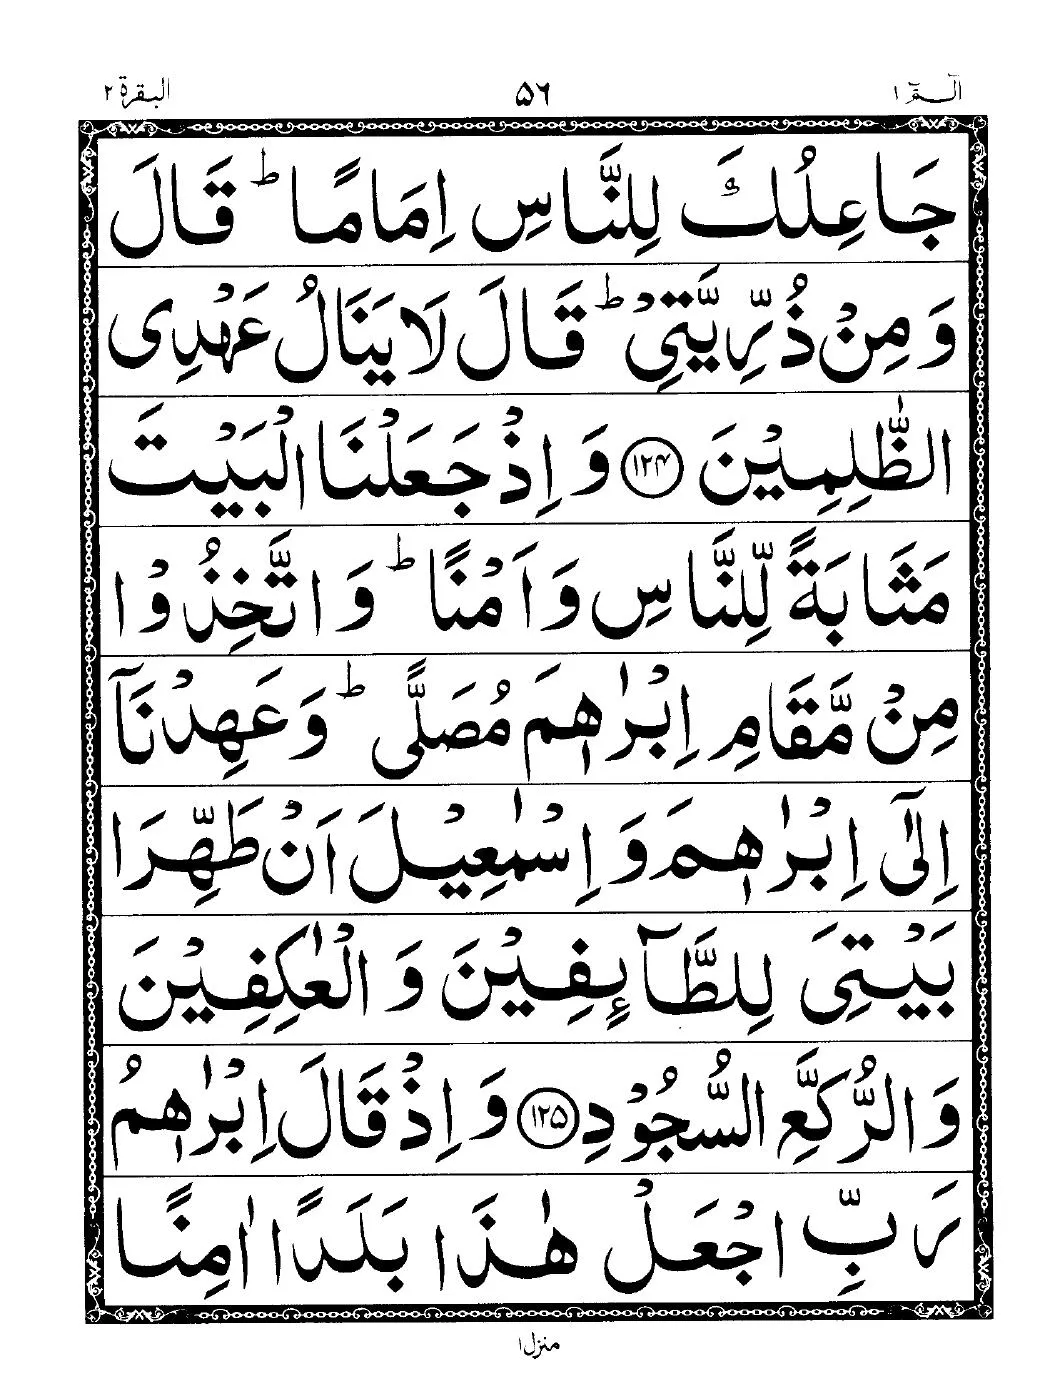 الٓـمّٓ ١ ٥٦ البقرة ٢
جَاعِلُكَ لِلنَّاسِ اِمَامًا ؕ قَالَ
وَمِنْ ذُرِّيَّتِىْ ؕ قَالَ لَا يَنَالُ عَهْدِى
الظّٰلِمِيْنَ ١٢٤ وَاِذْ جَعَلْنَا الْبَيْتَ
مَثَابَةً لِّلنَّاسِ وَاَمْنًا ؕ وَاتَّخِذُوْا
مِنْ مَّقَامِ اِبْرٰهٖمَ مُصَلًّى ؕ وَعَهِدْنَآ
اِلٰٓى اِبْرٰهٖمَ وَاِسْمٰعِيْلَ اَنْ طَهِّرَا
بَيْتِىَ لِلطَّآئِفِيْنَ وَالْعٰكِفِيْنَ
وَالرُّكَّعِ السُّجُوْدِ ١٢٥ وَاِذْ قَالَ اِبْرٰهٖمُ
رَبِّ اجْعَلْ هٰذَا بَلَدًا اٰمِنًا
منزل ١